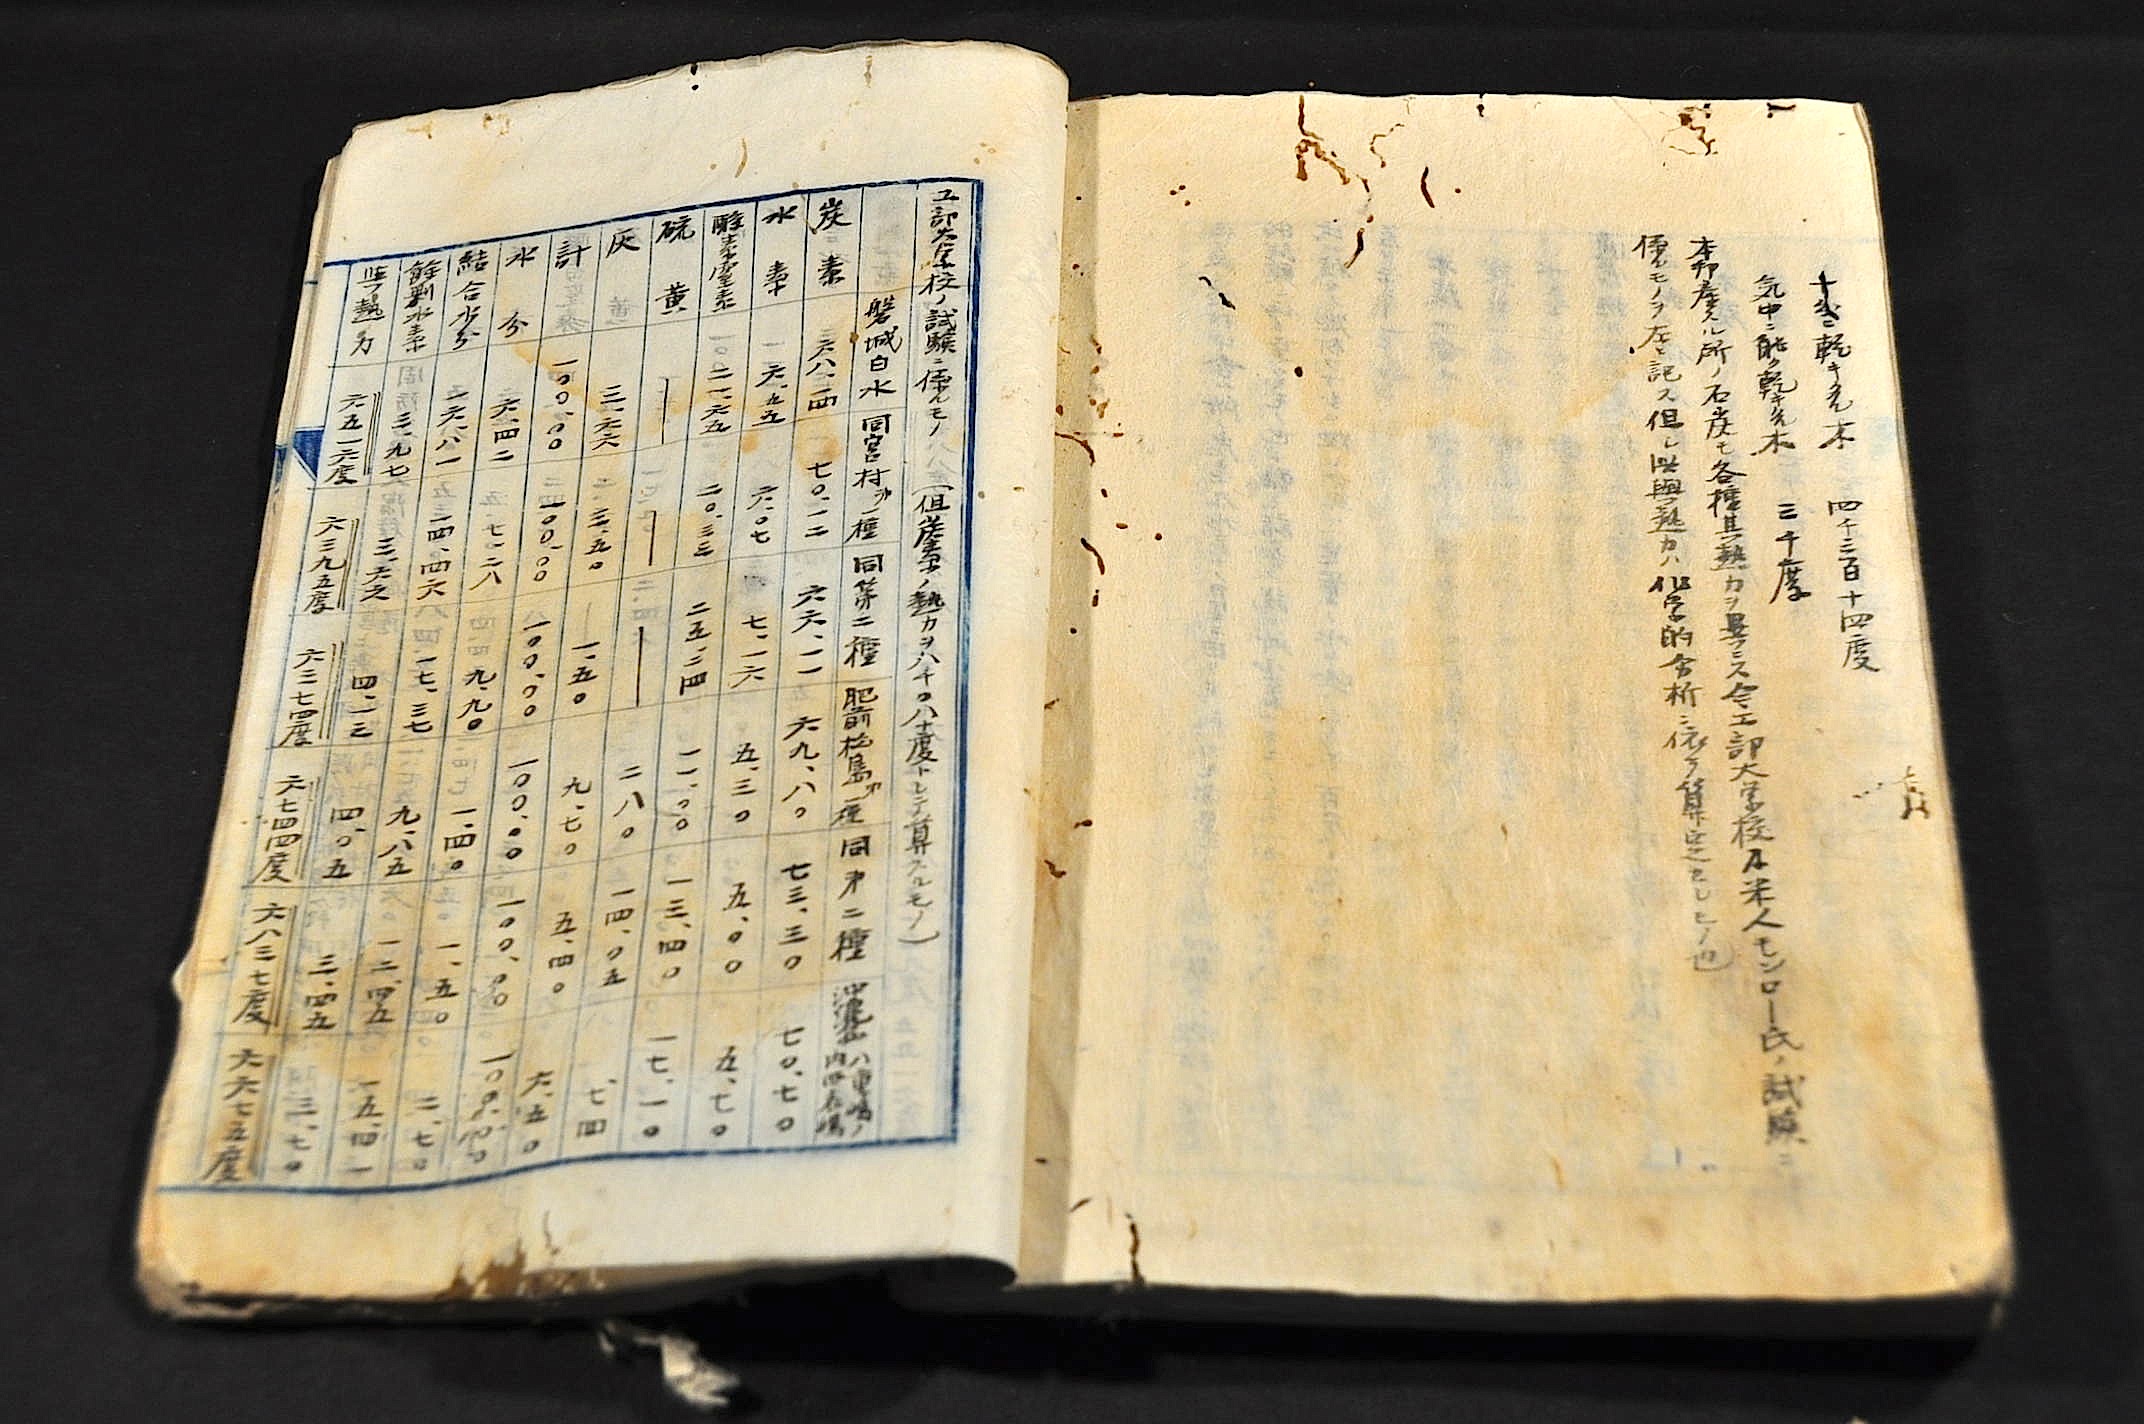 十分ニ乾キタル木 四千三百十四度
気中ニ能ク乾キタル木 三千度
本邦産スル所ノ石炭モ各種其熱力ヲ異ニス今工部大学校及米人モンロー氏ノ試験ニ
係ルモノヲ左ニ記ス但シ此與熱力ハ化学的分析ニ依テ算定セシモノ也
工部大学校ノ試験ニ係ルモノ(但炭素ノ熱力ヲ八千〇八十度トシテ算スルモノ)
磐城白水 同宮村第一種 同第二種 肥前松島第一種 同第二種 八重嶋ノ内
炭素 六八.一四 七〇.一二 六六.一一 六九.八〇 七三.三〇 七〇.七〇
水素 六.五五 六.〇七 七.一六 五.三〇 五.〇〇 五.七〇
酸素窒素 二一.六五 二〇.三三 二五.二四 一一.〇〇 一三.四〇 一七.一〇
硫黄 | | | 二八〇 一四.〇五 七.四
灰 三.六六 三.五〇 一.五〇 九.七〇 五.四〇 六.五〇
計 一〇〇.〇〇 一〇〇.〇〇 一〇〇.〇〇 一〇〇.〇〇 一〇〇.〇〇 一〇〇.〇〇
水分 六.四二 七.二八 九.九〇 一.四〇 一.五〇 二.七〇
結合水分 二六.八一 二四.四六 一七.三七 九.八五 一二.四五 一五.四一
餘剰水素 三.九七 三.六六 四.一三 四.〇五 三.四五 三.七〇
与熱力 六五一六度 六三九五度 六三七四度 六七四四度 六八三七度 六六七五度